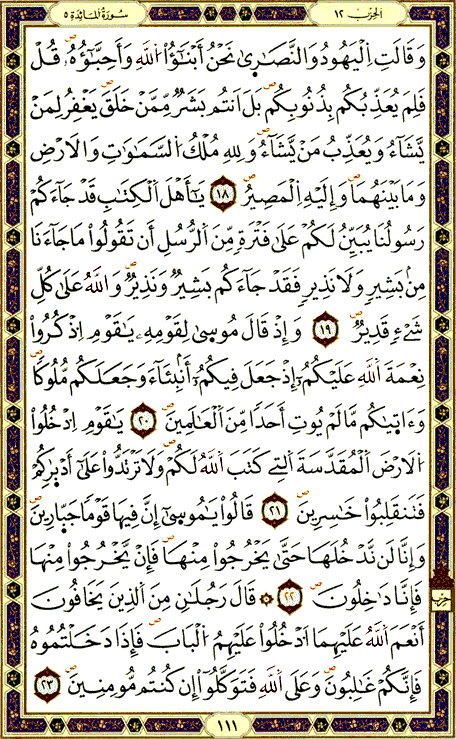 الحزب ١٢
سورة المائدة ٥
وَقَالَتِ اِ۬لْيَهُودُ وَالنَّصَٰر۪يٰ نَحْنُ أَبْنَٰٓؤُاْ اُ۬للَّهِ وَأَحِبَّٰٓؤُهُۥۖ قُلْ
فَلِمَ يُعَذِّبُكُم بِذُنُوبِكُمۖ بَلَ اَنتُم بَشَرٞ مِّمَّنْ خَلَقَۖ يَغْفِرُ لِمَنْ
يَّشَآءُ وَيُعَذِّبُ مَنْ يَّشَآءُۖ وَلِلهِ مُلْكُ اُ۬لسَّمَٰوَٰتِ وَالَارْضِ
وَمَا بَيْنَهُمَاۖ وَإِلَيْهِ اِ۬لْمَصِيرُۖ ١٨ يَٰٓأَهْلَ اَ۬لْكِتَٰبِ قَدْ جَآءَكُمْ
رَسُولُنَا يُبَيِّنُ لَكُمْ عَلَىٰ فَتْرَةٖ مِّنَ اَ۬لرُّسُلِ أَن تَقُولُواْ مَا جَآءَنَا
مِنۢ بَشِيرٖ وَلَا نَذِيرٖۖ فَقَدْ جَآءَكُم بَشِيرٞ وَنَذِيرٞۖ وَاللَّهُ عَلَىٰ كُلِّ
شَےْءٖ قَدِيرٞۖ ١٩ وَإِذْ قَالَ مُوس۪يٰ لِقَوْمِهِۦ يَٰقَوْمِ اِ۟ذْكُرُواْ
نِعْمَةَ اَ۬للَّهِ عَلَيْكُمُۥٓ إِذْ جَعَلَ فِيكُمُۥٓ أَنۢبِئَآءَ وَجَعَلَكُم مُّلُوكاٗۖ
وَءَات۪يٰكُم مَّا لَمْ يُوتِ أَحَداٗ مِّنَ اَ۬لْعَٰلَمِينَۖ ٢٠ يَٰقَوْمِ اِ۟دْخُلُواْ
اُ۬لَارْضَ اَ۬لْمُقَدَّسَةَ اَ۬لتِے كَتَبَ اَ۬للَّهُ لَكُمْ وَلَا تَرْتَدُّواْ عَلَىٰٓ أَدْبٰ۪رِكُمْ
فَتَنقَلِبُواْ خَٰسِرِينَۖ ٢١ قَالُواْ يَٰمُوس۪يٰٓ إِنَّ فِيهَا قَوْماٗ جَبّ۪ارِينَ
وَإِنَّا لَن نَّدْخُلَهَا حَتَّىٰ يَخْرُجُواْ مِنْهَاۖ فَإِنْ يَّخْرُجُواْ مِنْهَا
فَإِنَّا دَٰخِلُونَۖ ٢٢ ۞ قَالَ رَجُلَٰنِ مِنَ اَ۬لذِينَ يَخَافُونَ
أَنْعَمَ اَ۬للَّهُ عَلَيْهِمَا اَ۟دْخُلُواْ عَلَيْهِمُ اُ۬لْبَابَۖ فَإِذَا دَخَلْتُمُوهُ
فَإِنَّكُمْ غَٰلِبُونَۖ وَعَلَى اَ۬للَّهِ فَتَوَكَّلُوٓاْ إِن كُنتُم مُّومِنِينَۖ ٢٣
حزب
١١١